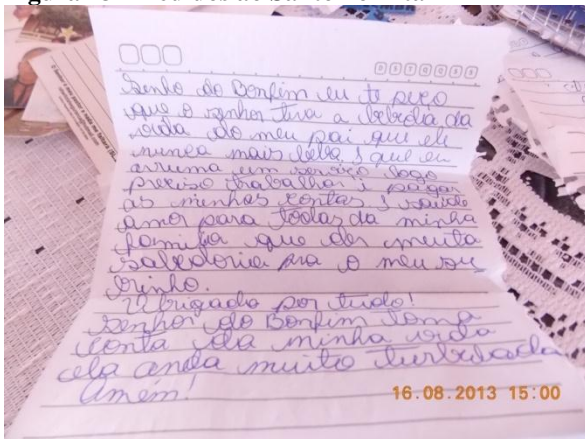 D S T Q Q S S
Senho do Bonfim eu te peço
que o senhor tira a bebedia da
vida do meu pai que ele
nunca mais beba, que eu
arruma um serviço logo
preciso trabalhar i pagar
as minhas contas, saúde
amor para todas da minha
familia que der muita
sabedoria pra o meu su
brinho.
Obrigado por tudo!
Senhor do Bonfim toma
conta da minha vida
ela anda muito turbulada
Amém!
16.08.2013 15:00